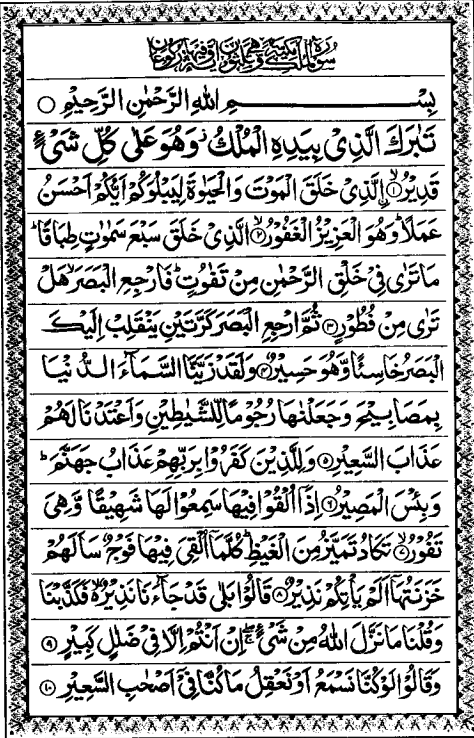 سورة الملك مكية وهي ثلثون اية وفيها ركوعان
بِسْمِ اللهِ الرَّحْمٰنِ الرَّحِيْمِ ○
تَبٰرَكَ الَّذِىْ بِيَدِهِ الْمُلْكُ ز وَهُوَ عَلٰى كُلِّ شَىْءٍ
قَدِيْرُ ۨ ۙ﴿۱﴾ الَّذِىْ خَلَقَ الْمَوْتَ وَالْحَيٰوةَ لِيَبْلُوَكُمْ اَيُّكُمْ اَحْسَنُ
عَمَلًا ؕ وَهُوَ الْعَزِيْزُ الْغَفُوْرُ ۙ﴿۲﴾ الَّذِىْ خَلَقَ سَبْعَ سَمٰوٰتٍ طِبَاقًا ؕ
مَا تَرٰى فِىْ خَلْقِ الرَّحْمٰنِ مِنْ تَفٰوُتٍ ؕ فَارْجِعِ الْبَصَرَ ۙ هَلْ
تَرٰى مِنْ فُطُوْرٍ ﴿۳﴾ ثُمَّ ارْجِعِ الْبَصَرَ كَرَّتَيْنِ يَنْقَلِبْ اِلَيْكَ
الْبَصَرُ خَاسِئًا وَّهُوَ حَسِيْرٌ ﴿۴﴾ وَلَقَدْ زَيَّنَّا السَّمَآءَ الدُّنْيَا
بِمَصَابِيْحَ وَجَعَلْنٰهَا رُجُوْمًا لِّلشَّيٰطِيْنِ وَاَعْتَدْنَا لَهُمْ
عَذَابَ السَّعِيْرِ ﴿۵﴾ وَلِلَّذِيْنَ كَفَرُوْا بِرَبِّهِمْ عَذَابُ جَهَنَّمَ ؕ
وَبِئْسَ الْمَصِيْرُ ﴿۶﴾ اِذَآ اُلْقُوْا فِيْهَا سَمِعُوْا لَهَا شَهِيْقًا وَّهِىَ
تَفُوْرُ ۙ﴿۷﴾ تَكَادُ تَمَيَّزُ مِنَ الْغَيْظِ ؕ كُلَّمَآ اُلْقِىَ فِيْهَا فَوْجٌ سَاَلَهُمْ
خَزَنَتُهَآ اَلَمْ يَاْتِكُمْ نَذِيْرٌ ﴿۸﴾ قَالُوْا بَلٰى قَدْ جَآءَنَا نَذِيْرٌ ۙ۬ فَكَذَّبْنَا
وَقُلْنَا مَا نَزَّلَ اللهُ مِنْ شَىْءٍ ۚۖ اِنْ اَنْتُمْ اِلَّا فِىْ ضَلٰلٍ كَبِيْرٍ ﴿۹﴾
وَقَالُوْا لَوْ كُنَّا نَسْمَعُ اَوْ نَعْقِلُ مَا كُنَّا فِىْٓ اَصْحٰبِ السَّعِيْرِ ﴿۱۰﴾